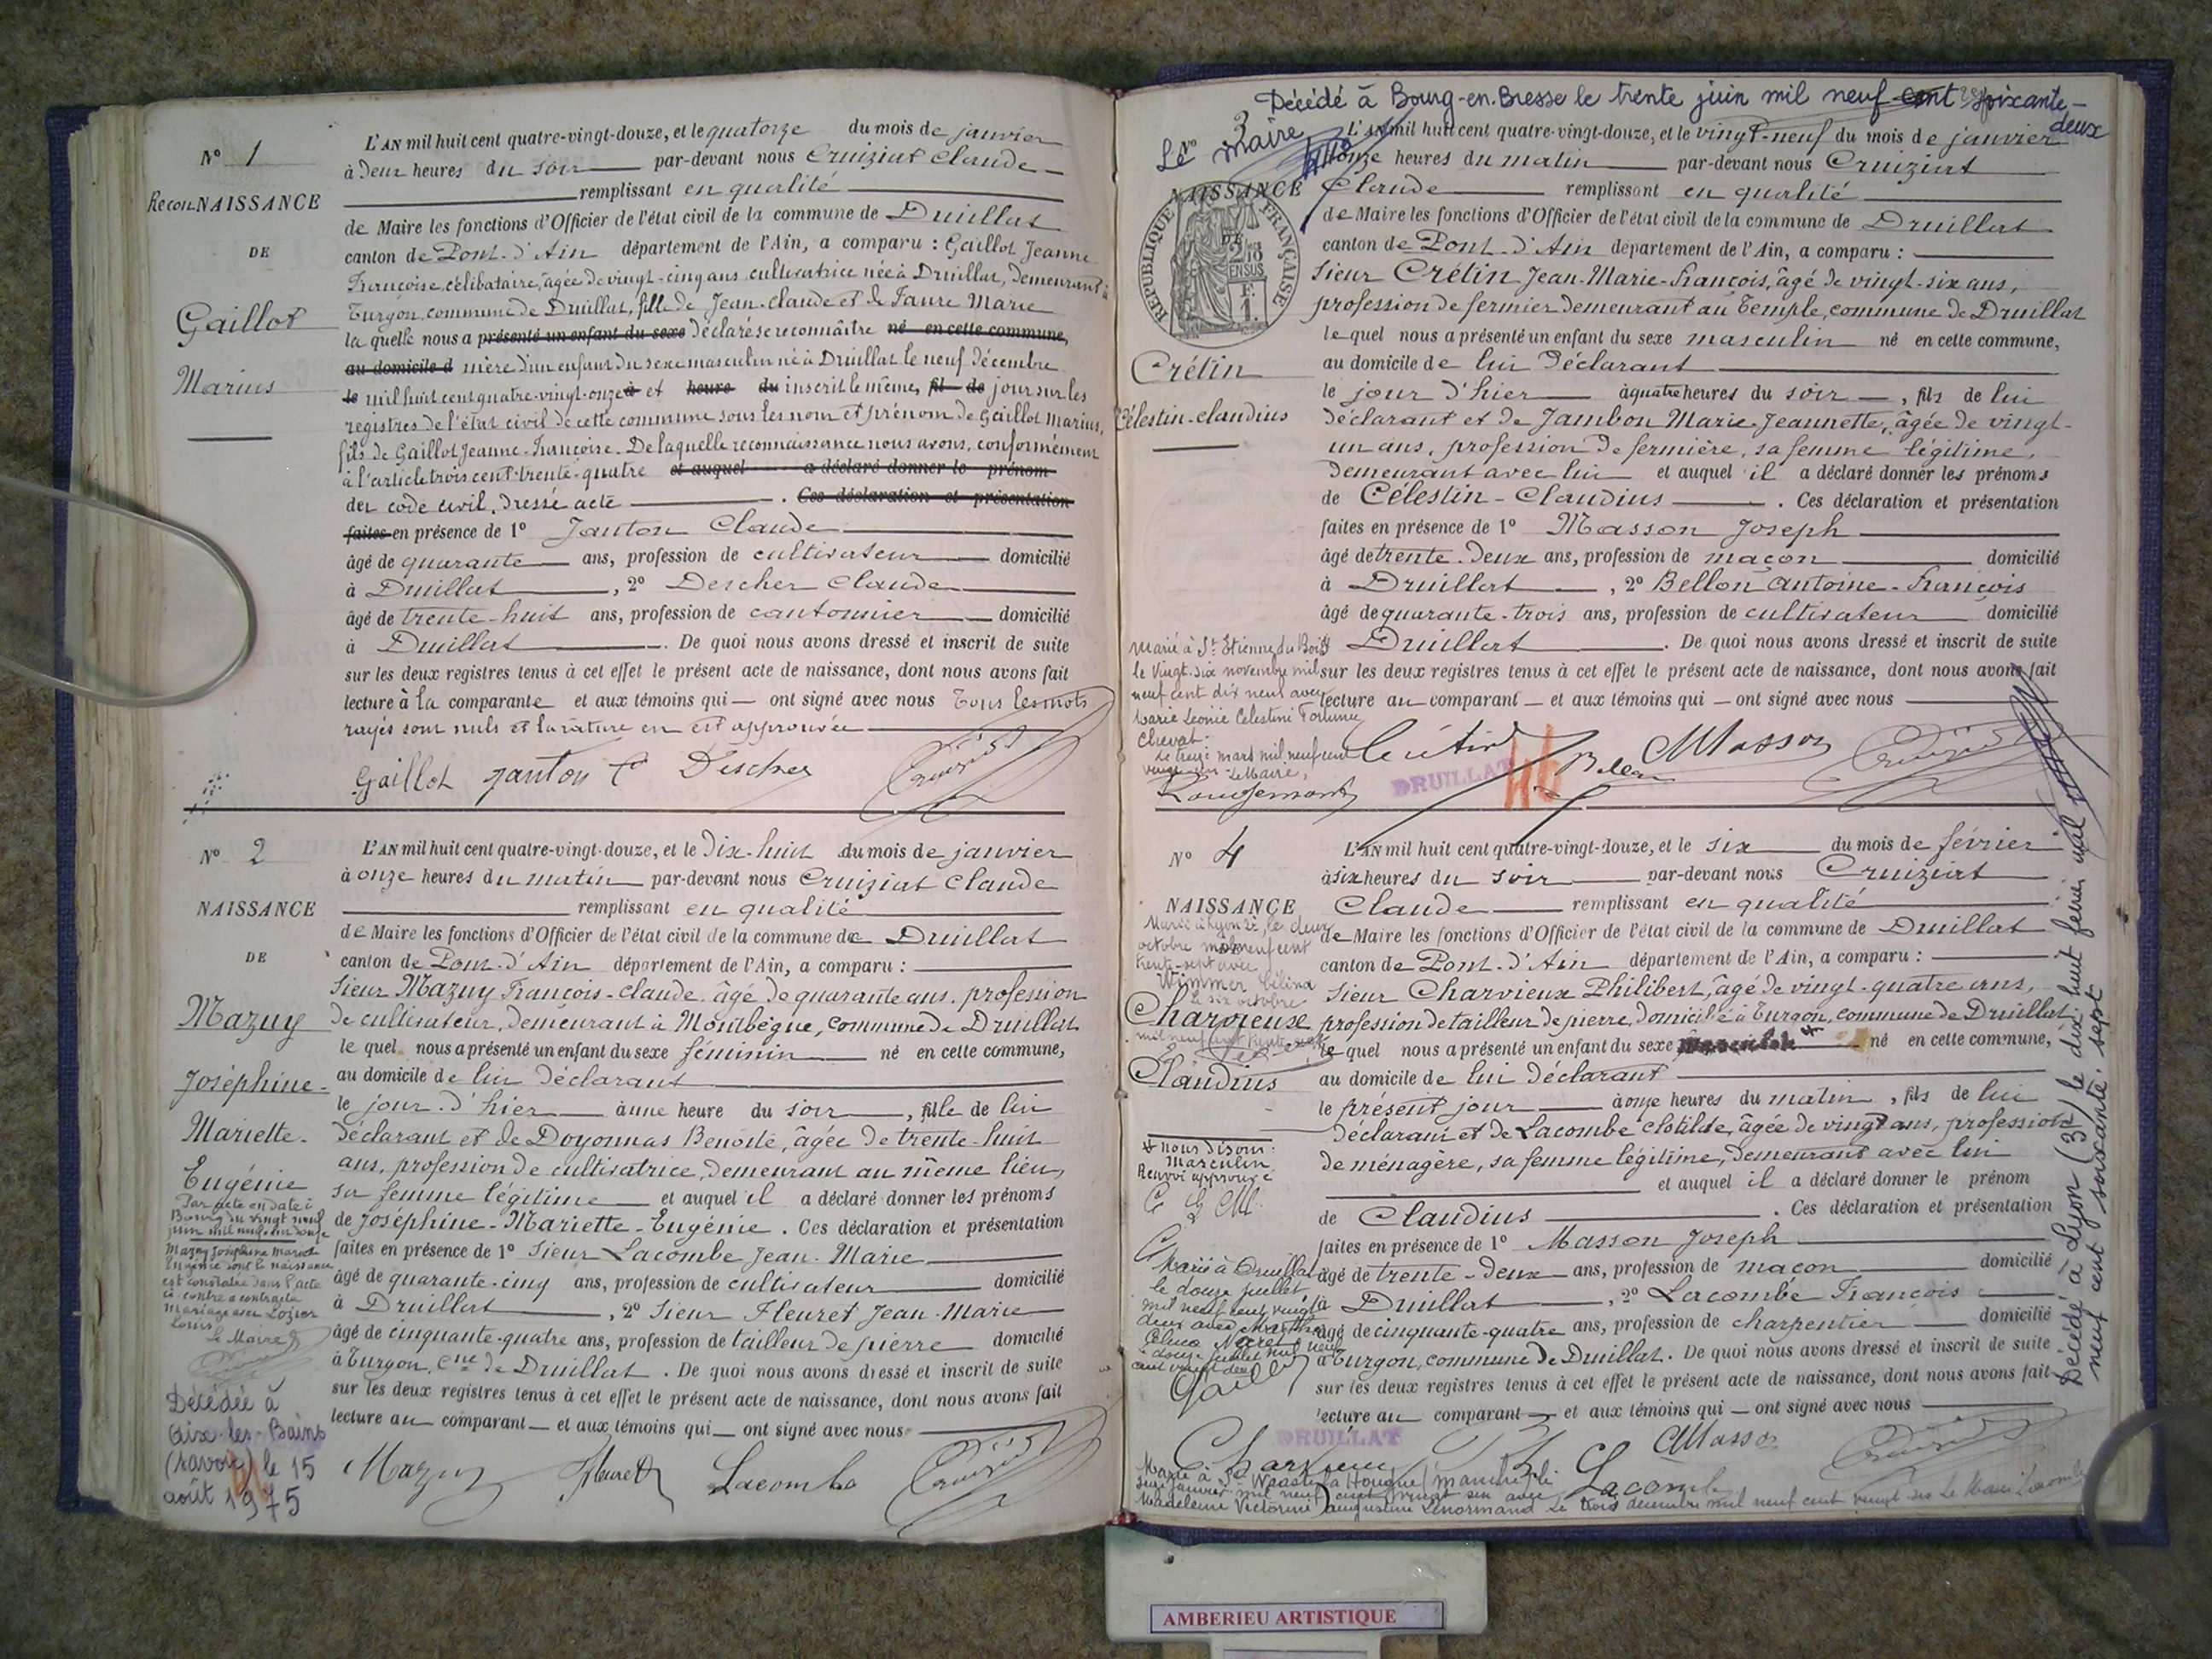 N° 1
ReconNAISSANCE
DE
Gaillot
Marius
L'AN mil huit cent quatre-vingt-douze, et le quatorze du mois de janvier
à deux heures du soir par-devant nous Cruiziat Claude
remplissant en qualité
de Maire les fonctions d'Officier de l'état civil de la commune de Druillat
canton de Pont-d'Ain département de l'Ain, a comparu : Gaillot Jeanne
Françoise, célibataire, âgée de vingt-cinq ans, cultivatrice née à Druillat, demeurant à
Turgon, commune de Druillat, fille de Jean-Claude et de Faure Marie
la quelle nous a présenté un enfant du sexe déclaré se reconnaître né en cette commune,
au domicile d mère d'un enfant du sexe masculin né à Druillat le neuf décembre
le mil huit cent quatre-vingt-onze à et heure du inscrit le même, fil de jour sur les
registres de l'état civil de cette commune sous les nom et prénom de Gaillot Marius,
fils de Gaillot Jeanne-Françoise. De laquelle reconnaissance nous avons, conformément
à l'article trois cent-trente-quatre et auquel a déclaré donner le prénom
du code civil, dressé acte . Ces déclaration et présentation
faites en présence de 1° Janton Claude
âgé de quarante ans, profession de cultivateur domicilié
à Druillat , 2° Descher Claude
âgé de trente-huit ans, profession de cantonnier domicilié
à Druillat . De quoi nous avons dressé et inscrit de suite
sur les deux registres tenus à cet effet le présent acte de naissance, dont nous avons fait
lecture à la comparante et aux témoins qui ont signé avec nous Tous les mots
rayés sont nuls et la rature en est approuvée
Gaillot Janton C Descher
N° 2
NAISSANCE
DE
Mazuy
Joséphine-
Mariette-
Eugénie
Par acte en date à
Bourg du vingt neuf
juin mil neuf cent douze
Mazuy Joséphine Mariette
Eugénie dont la naissance
est constatée dans l'acte
ci-contre a contracté
mariage avec Lozier
Louis
Le Maire
Décédée à
Aix-les-Bains
(Savoie) le 15
août 1975
L'AN mil huit cent quatre-vingt-douze, et le dix-huit du mois de janvier
à onze heures du matin par-devant nous Cruiziat Claude
remplissant en qualité
de Maire les fonctions d'Officier de l'état civil de la commune de Druillat
canton de Pont-d'Ain département de l'Ain, a comparu :
Sieur Mazuy François-Claude, âgé de quarante ans, profession
de cultivateur, demeurant à Montbègue, commune de Druillat
le quel nous a présenté un enfant du sexe féminin né en cette commune,
au domicile de lui déclarant
le jour d'hier à une heure du soir , fille de lui
déclarant et de Doyonnas Benoîte, âgée de trente-huit
ans, profession de cultivatrice, demeurant au même lieu,
sa femme légitime et auquel il a déclaré donner les prénoms
de Joséphine-Mariette-Eugénie . Ces déclaration et présentation
faites en présence de 1° Sieur Lacombe Jean-Marie
âgé de quarante-cinq ans, profession de cultivateur domicilié
à Druillat , 2° Sieur Fleuret Jean-Marie
âgé de cinquante-quatre ans, profession de tailleur de pierre domicilié
à Turgon, cne de Druillat . De quoi nous avons dressé et inscrit de suite
sur les deux registres tenus à cet effet le présent acte de naissance, dont nous avons fait
lecture au comparant et aux témoins qui ont signé avec nous
Mazuy Fleuret Lacombe
Décédé à Bourg-en-Bresse le trente juin mil neuf cent soixante-
deux
Le Maire
N° 3
NAISSANCE
DE
RÉPUBLIQUE FRANÇAISE
Crétin
Célestin-Claudius
Marié à St Etienne du Bois
le vingt-six novembre mil
neuf cent dix neuf avec
Marie Léonie Célestine Fortuney
Chevat.
Le treize mars mil neuf cent
vingt Le Maire,
Rougemont
L'AN mil huit cent quatre-vingt-douze, et le vingt-neuf du mois de janvier
onze heures du matin par-devant nous Cruiziat
Claude remplissant en qualité
de Maire les fonctions d'Officier de l'état civil de la commune de Druillat
canton de Pont-d'Ain département de l'Ain, a comparu :
Sieur Crétin Jean-Marie-François, âgé de vingt-six ans,
profession de fermier demeurant au Temple, commune de Druillat
le quel nous a présenté un enfant du sexe masculin né en cette commune,
au domicile de lui déclarant
le jour d'hier à quatre heures du soir , fils de lui
déclarant et de Jambon Marie-Jeannette, âgée de vingt-
un ans, profession de fermière, sa femme légitime,
demeurant avec lui et auquel il a déclaré donner les prénoms
de Célestin-Claudius . Ces déclaration et présentation
faites en présence de 1° Masson Joseph
âgé de trente-deux ans, profession de maçon domicilié
à Druillat , 2° Bellon Antoine-François
âgé de quarante-trois ans, profession de cultivateur domicilié
à Druillat . De quoi nous avons dressé et inscrit de suite
sur les deux registres tenus à cet effet le présent acte de naissance, dont nous avons fait
lecture au comparant et aux témoins qui ont signé avec nous
Crétin Masson
DRUILLAT
N° 4
NAISSANCE
DE
Marié à Lyon 2e, le deux
octobre mil neuf cent
trente-sept avec
Wimmer Célina
le six octobre
Charvieux
mil neuf cent trente-sept
Claudius
nous disons
masculin
Renvoi approuvé
C L CM
Marié à Druillat
le douze juillet
mil neuf cent vingt
deux avec Marthe
douze juillet mil neuf
cent vingt deux
L'AN mil huit cent quatre-vingt-douze, et le six du mois de février
à six heures du soir par-devant nous Cruiziat
Claude remplissant en qualité
de Maire les fonctions d'Officier de l'état civil de la commune de Druillat
canton de Pont-d'Ain département de l'Ain, a comparu :
Sieur Charvieux Philibert, âgé de vingt-quatre ans,
profession de tailleur de pierre, domicilié à Turgon, commune de Druillat
le quel nous a présenté un enfant du sexe né en cette commune,
au domicile de lui déclarant
le présent jour à onze heures du matin , fils de lui
déclarant et de Lacombe Clotilde, âgée de vingt ans, profession
de ménagère, sa femme légitime, demeurant avec lui
et auquel il a déclaré donner le prénom
de Claudius . Ces déclaration et présentation
faites en présence de 1° Masson Joseph
âgé de trente-deux ans, profession de maçon domicilié
à Druillat , 2° Lacombe François
âgé de cinquante-quatre ans, profession de charpentier domicilié
à Turgon, commune de Druillat . De quoi nous avons dressé et inscrit de suite
sur les deux registres tenus à cet effet le présent acte de naissance, dont nous avons fait
lecture au comparant et aux témoins qui ont signé avec nous
DRUILLAT
Charvieux Lacombe CMasson
Marié à St Waast la Hougue (Manche) le
janvier mil neuf cent vingt six avec
Madeleine Victorine Augustine Lenormand Le trois décembre mil neuf cent vingt six Le Maire Lacombe
Décédé à Lyon (3e) le dix huit février mil
neuf cent soixante-sept
AMBERIEU ARTISTIQUE